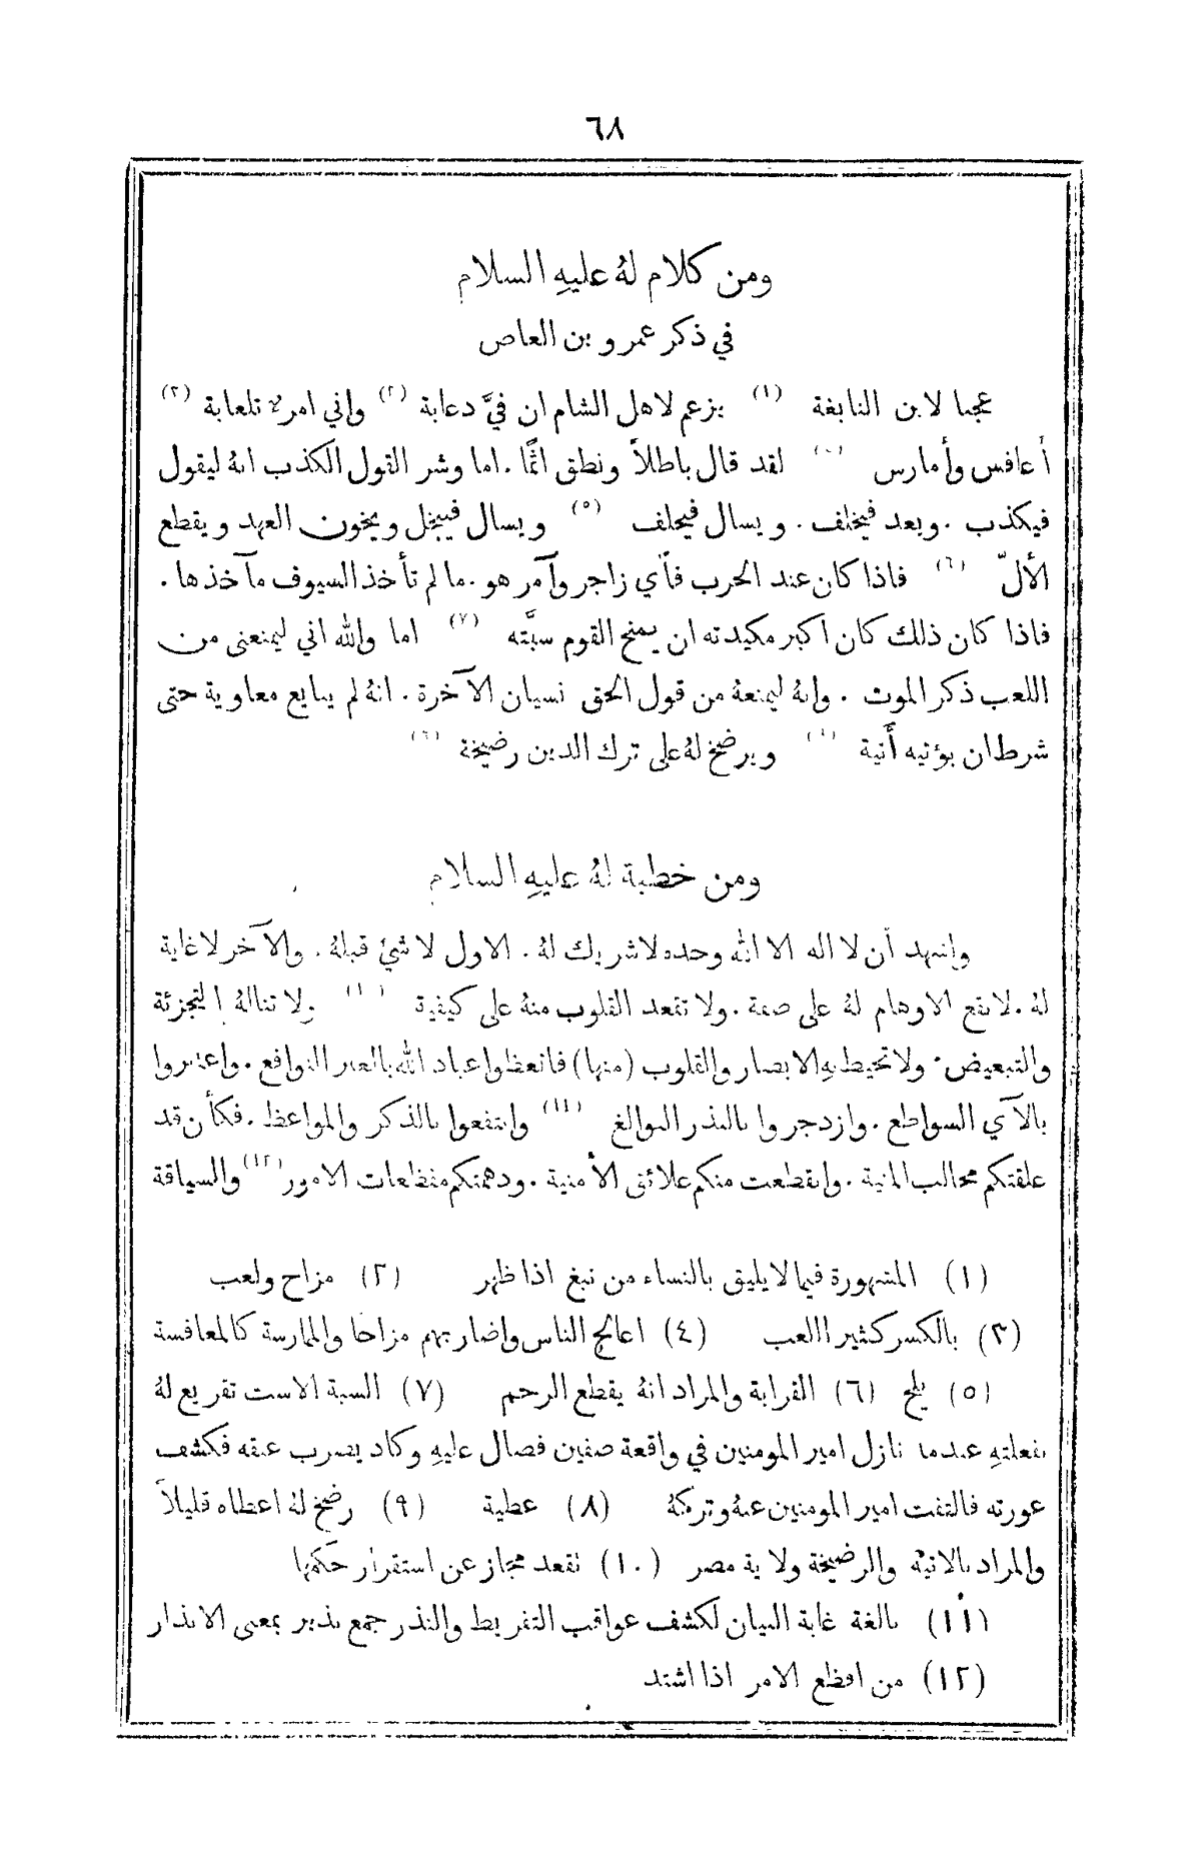 ٦٨
ومن كلام لهُ عليهِ السلام
في ذكر عمرو بن العاص
عجبا لابن النابغة (١) يزعم لاهل الشام ان فيَّ دعابة (٢) واني امرء تلعابة (٣)
أعافس وأمارس لقد قال باطلاً ونطق اثمًا . اما وشر القول الكذب انهُ ليقول
فيكذب . ويعد فيخلف . ويسال فيحلف (٥) ويسال فيبخل ويخون العهد ويقطع
الألّ (٦) فاذا كان عند الحرب فأي زاجر وآمر هو . ما لم تأخذ السيوف مآخذها .
فاذا كان ذلك كان اكبر مكيدته ان يمنح القوم سبَّته (٧) اما والله اني ليمنعنى من
اللعب ذكر الموت . وانهُ ليمنعهُ من قول الحق نسيان الآخرة . انهُ لم يبايع معاوية حتى
شرط ان يؤتيه أَتية ويرضخ لهُ على ترك الدين رضيخة
ومن خطبة لهُ عليهِ السلام
واشهد أن لا اله الا الله وحده لا شريك لهُ . الاول لا شئ قبلهُ . والآخر لا غاية
لهُ . لا تقع الاوهام لهُ على صفة . ولا تقعد القلوب منهُ على كيفية ولا تنالهُ التجزئة
والتبعيض . ولا تحيط بهِ الابصار والقلوب (منها) فاتعظوا عباد الله بالعبر النوافع . واعتبروا
بالآي السواطع . وازدجروا بالنذر البوالغ (١١) وانتفعوا بالذكر والمواعظ . فكأن قد
علقتكم مخالب المنية . وانقطعت منكم علائق الأمنية . ودهمتكم مفظعات الامور (١٢) والسياقة
(١) المشهورة فيما لا يليق بالنساء من نبغ اذا ظهر (٢) مزاح ولعب
(٣) بالكسر كثير االعب (٤) اعالج الناس واضاربهم مزاحًا والممارسة كالمعافسة
(٥) يلح (٦) القرابة والمراد انهُ يقطع الرحم (٧) السبة الاست تقريع لهُ
بفعلتهِ عندما نازل امير المومنين في واقعة صفين فصال عليهِ وكاد يضرب عنقه فكشف
عورته فالتفت امير المومنين عنهُ وتركهُ (٨) عطية (٩) رضخ لهُ اعطاه قليلاً
والمراد بالاتية والرضيخة ولاية مصر (١٠) تقعد مجاز عن استقرار حكمها
(١١) بالغة غاية البيان لكشف عواقب التفريط والنذر جمع نذير بمعنى الانذار
(١٢) من افظع الامر اذا اشتد